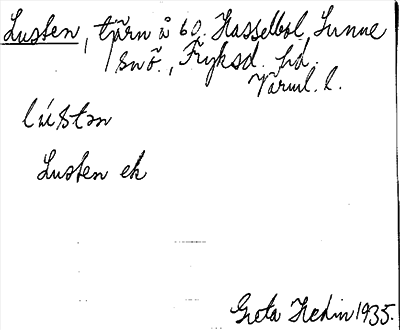 Lusten, tjärn å 60. Hasselbol, Sunne
snö., Fryksd. hd.
Värml. l.
lústən
Lusten ek
Greta Hedin 1935.